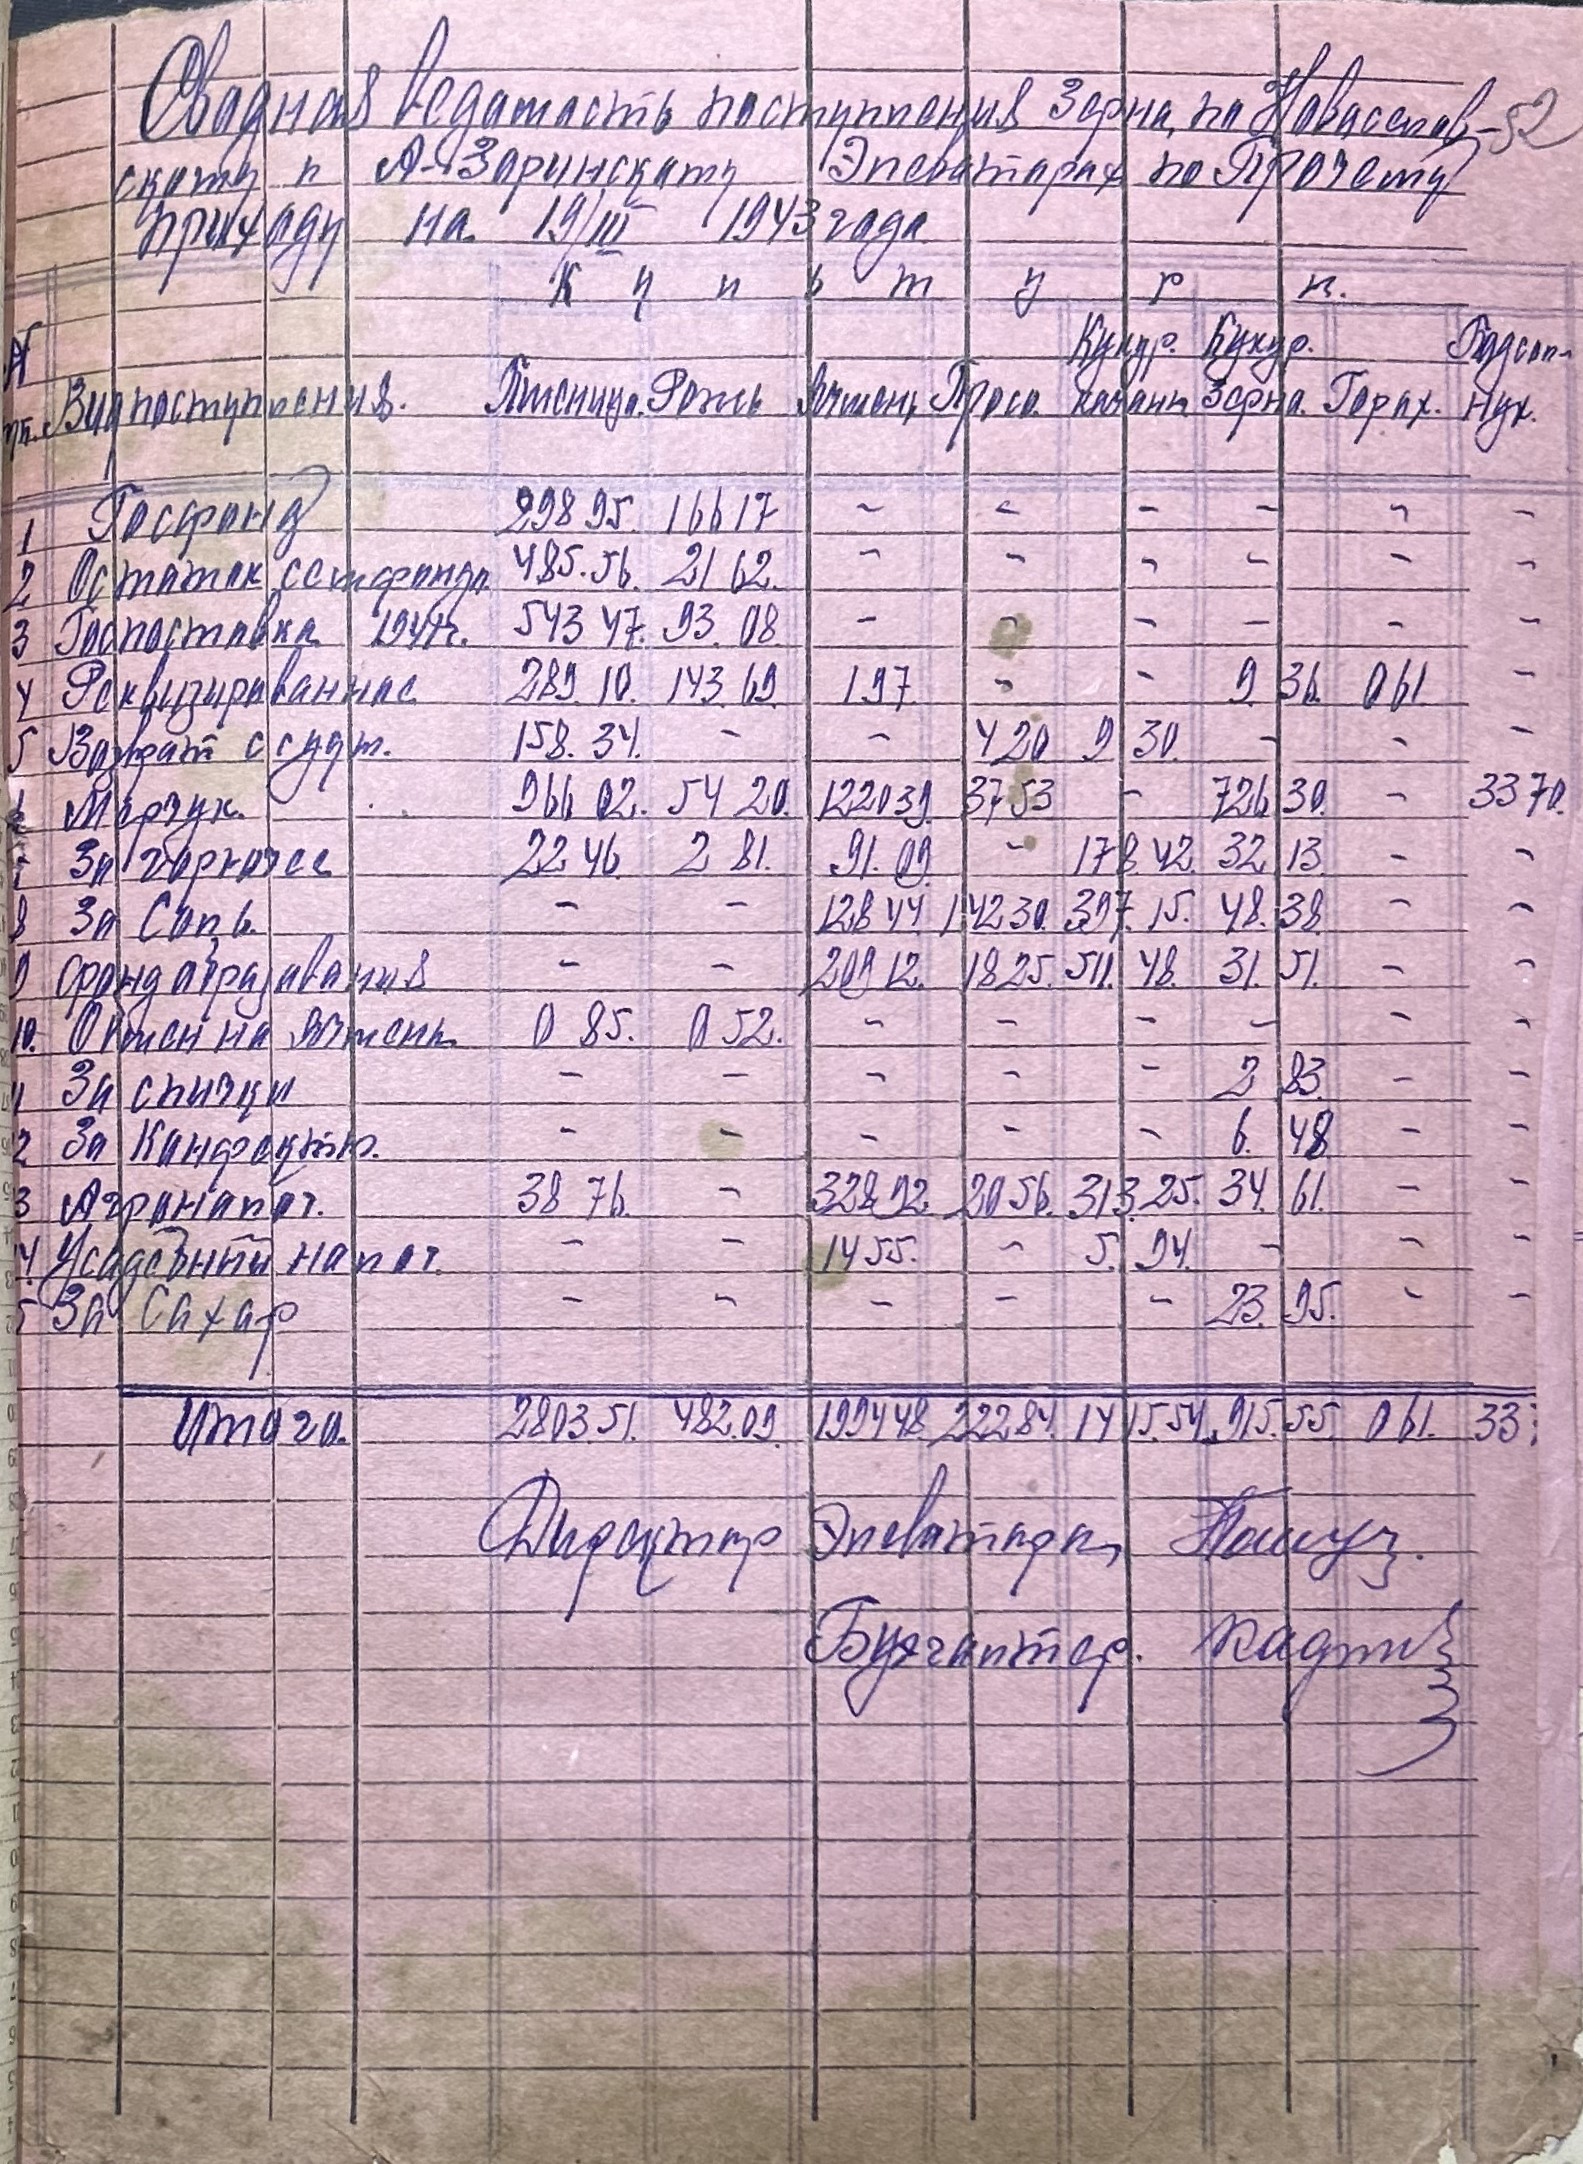 Сводная ведомость поступления Зерна по Новоселов-
52
скому и А-Заринскому Элеваторах по Прочему
приходу на 19/III 1943 года
К у л ь т у р ы.
Кукур. Кукур. Подсол-
№ пп. Вид поступления. Пшеница. Рожь Ячмень Просо. качаны Зерно. Горох. нух.
1 Госфонд 298 95. 166 17 - - - - - -
2 Остаток семфонда 485.56. 21 62. - - - - - -
3 Госпоставка 1941г. 543 47. 93. 08. - - - - - -
4 Реквизированное 289. 10. 143. 69. 1 97. - - 9. 36. 0 61. -
5 Возврат ссудт. 158. 34. - - 4 20 9 30. - - -
6 Мерчук. 966 02. 54 20. 1220 39. 37 53 - 726 30. - 33 70.
7 За горючее 22 46. 2 81. 91. 09. - 178. 42. 32 13. - -
8 За Соль. - - 128 44. 142 30. 397. 15. 48. 38. - -
9 Фонд образования - - 209 12. 18 25. 511. 48. 31. 51. - -
10. Обмен на Ячмень. 0 85. 0 52. - - - - - -
11 За спички - - - - - 2 83. - -
12 За Конфекцию. - - - - - 6. 48 - -
13 Агроналог. 38 76. - 328 92. 20 56. 313. 25. 34. 61. - -
14. Усадебный налог. - - 14 55. - 5. 94. - - -
15 За Сахар - - - - - 23. 95. - -
Итого. 2803.51. 482.09. 1994 48. 222 84. 14 15.54. 915. 55. 0 61. 33
Директор Элеватора
Бухгалтер.